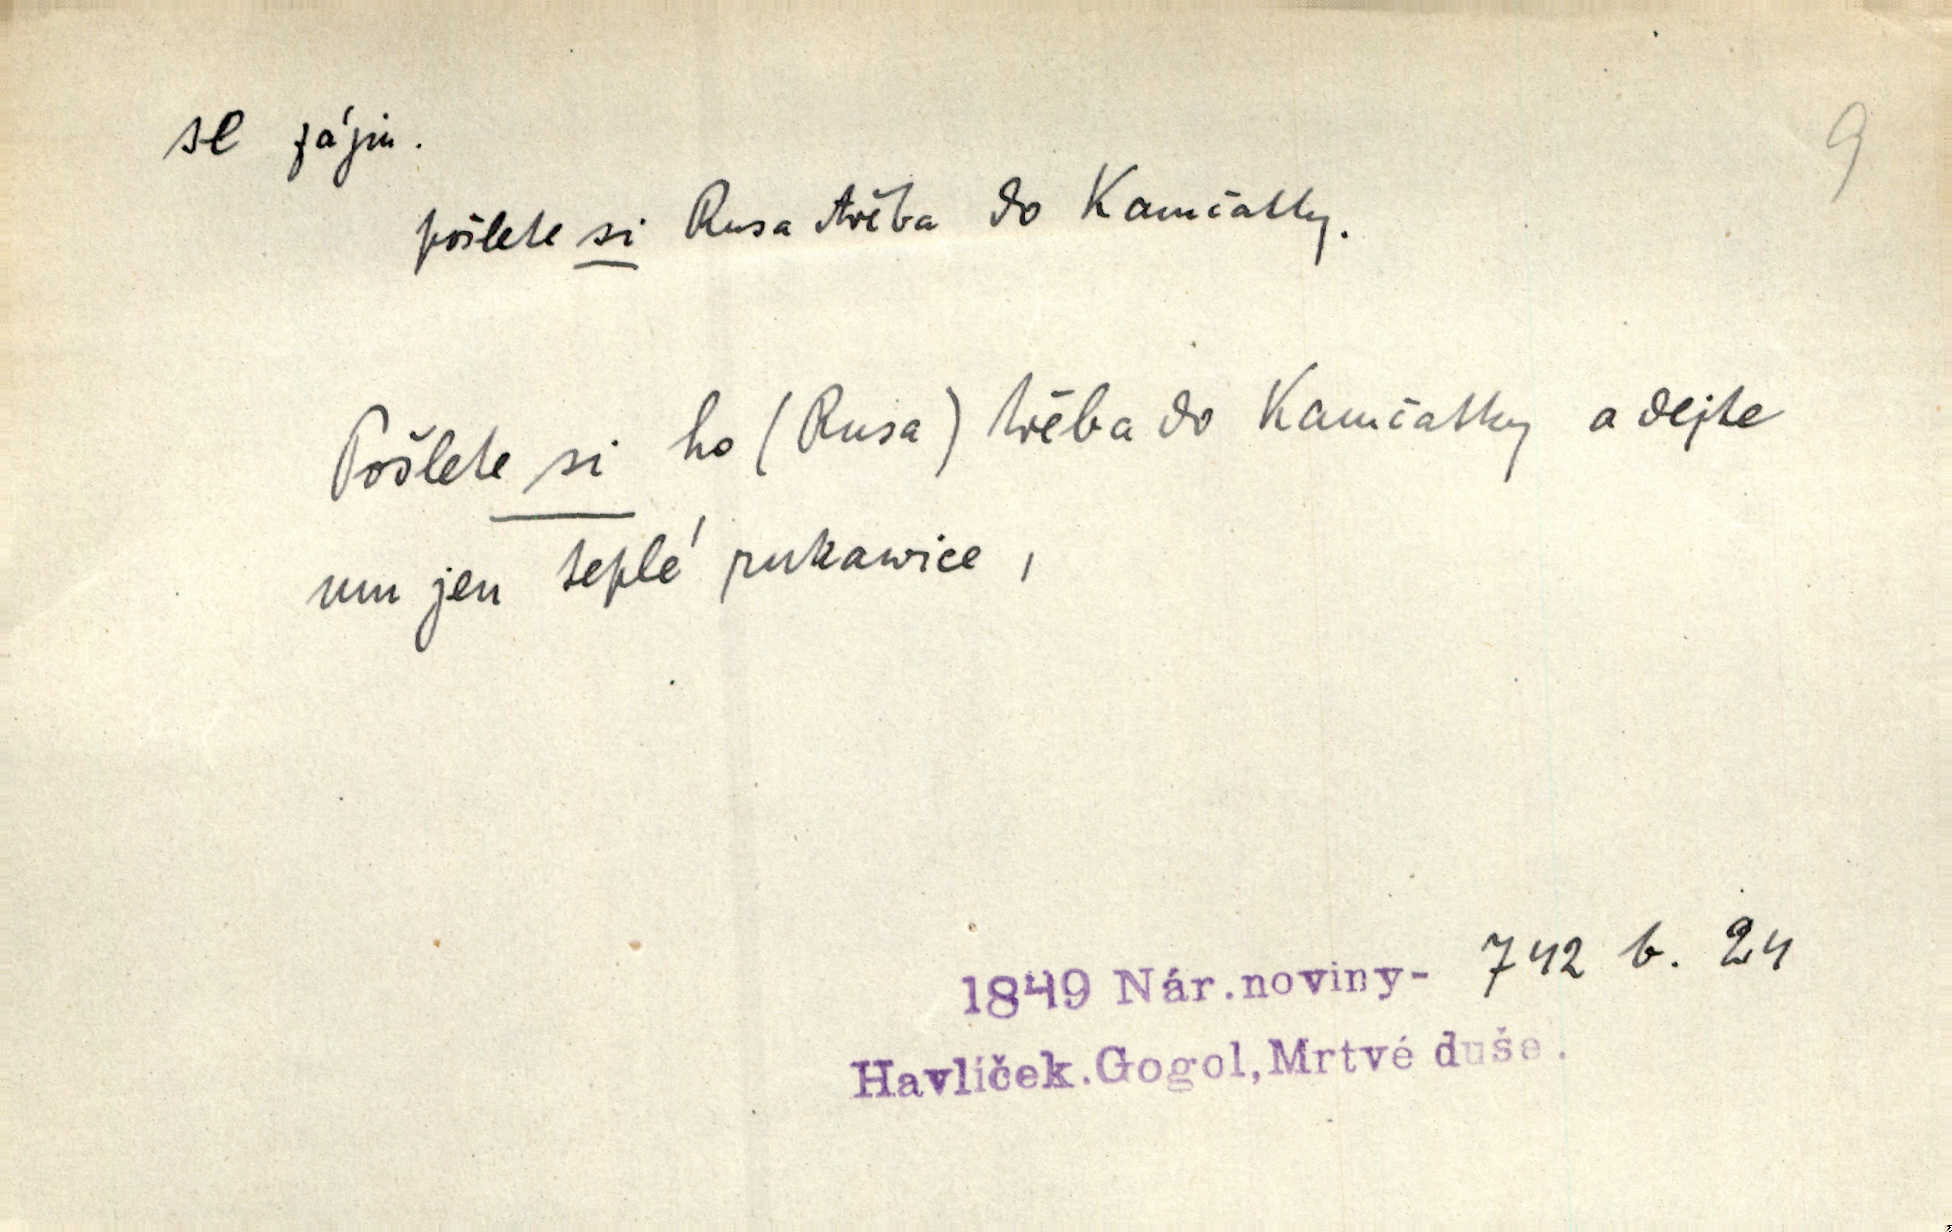 se zájm.
9
pošlete si Rusa třeba do Kamčatky.
Pošlete si ho (Rusa) třeba do Kamčatky a dejte
mu jen teplé rukawice,
1849 Nár.noviny- 742 b. 24
Havlíček.Gogol,Mrtvé duše.